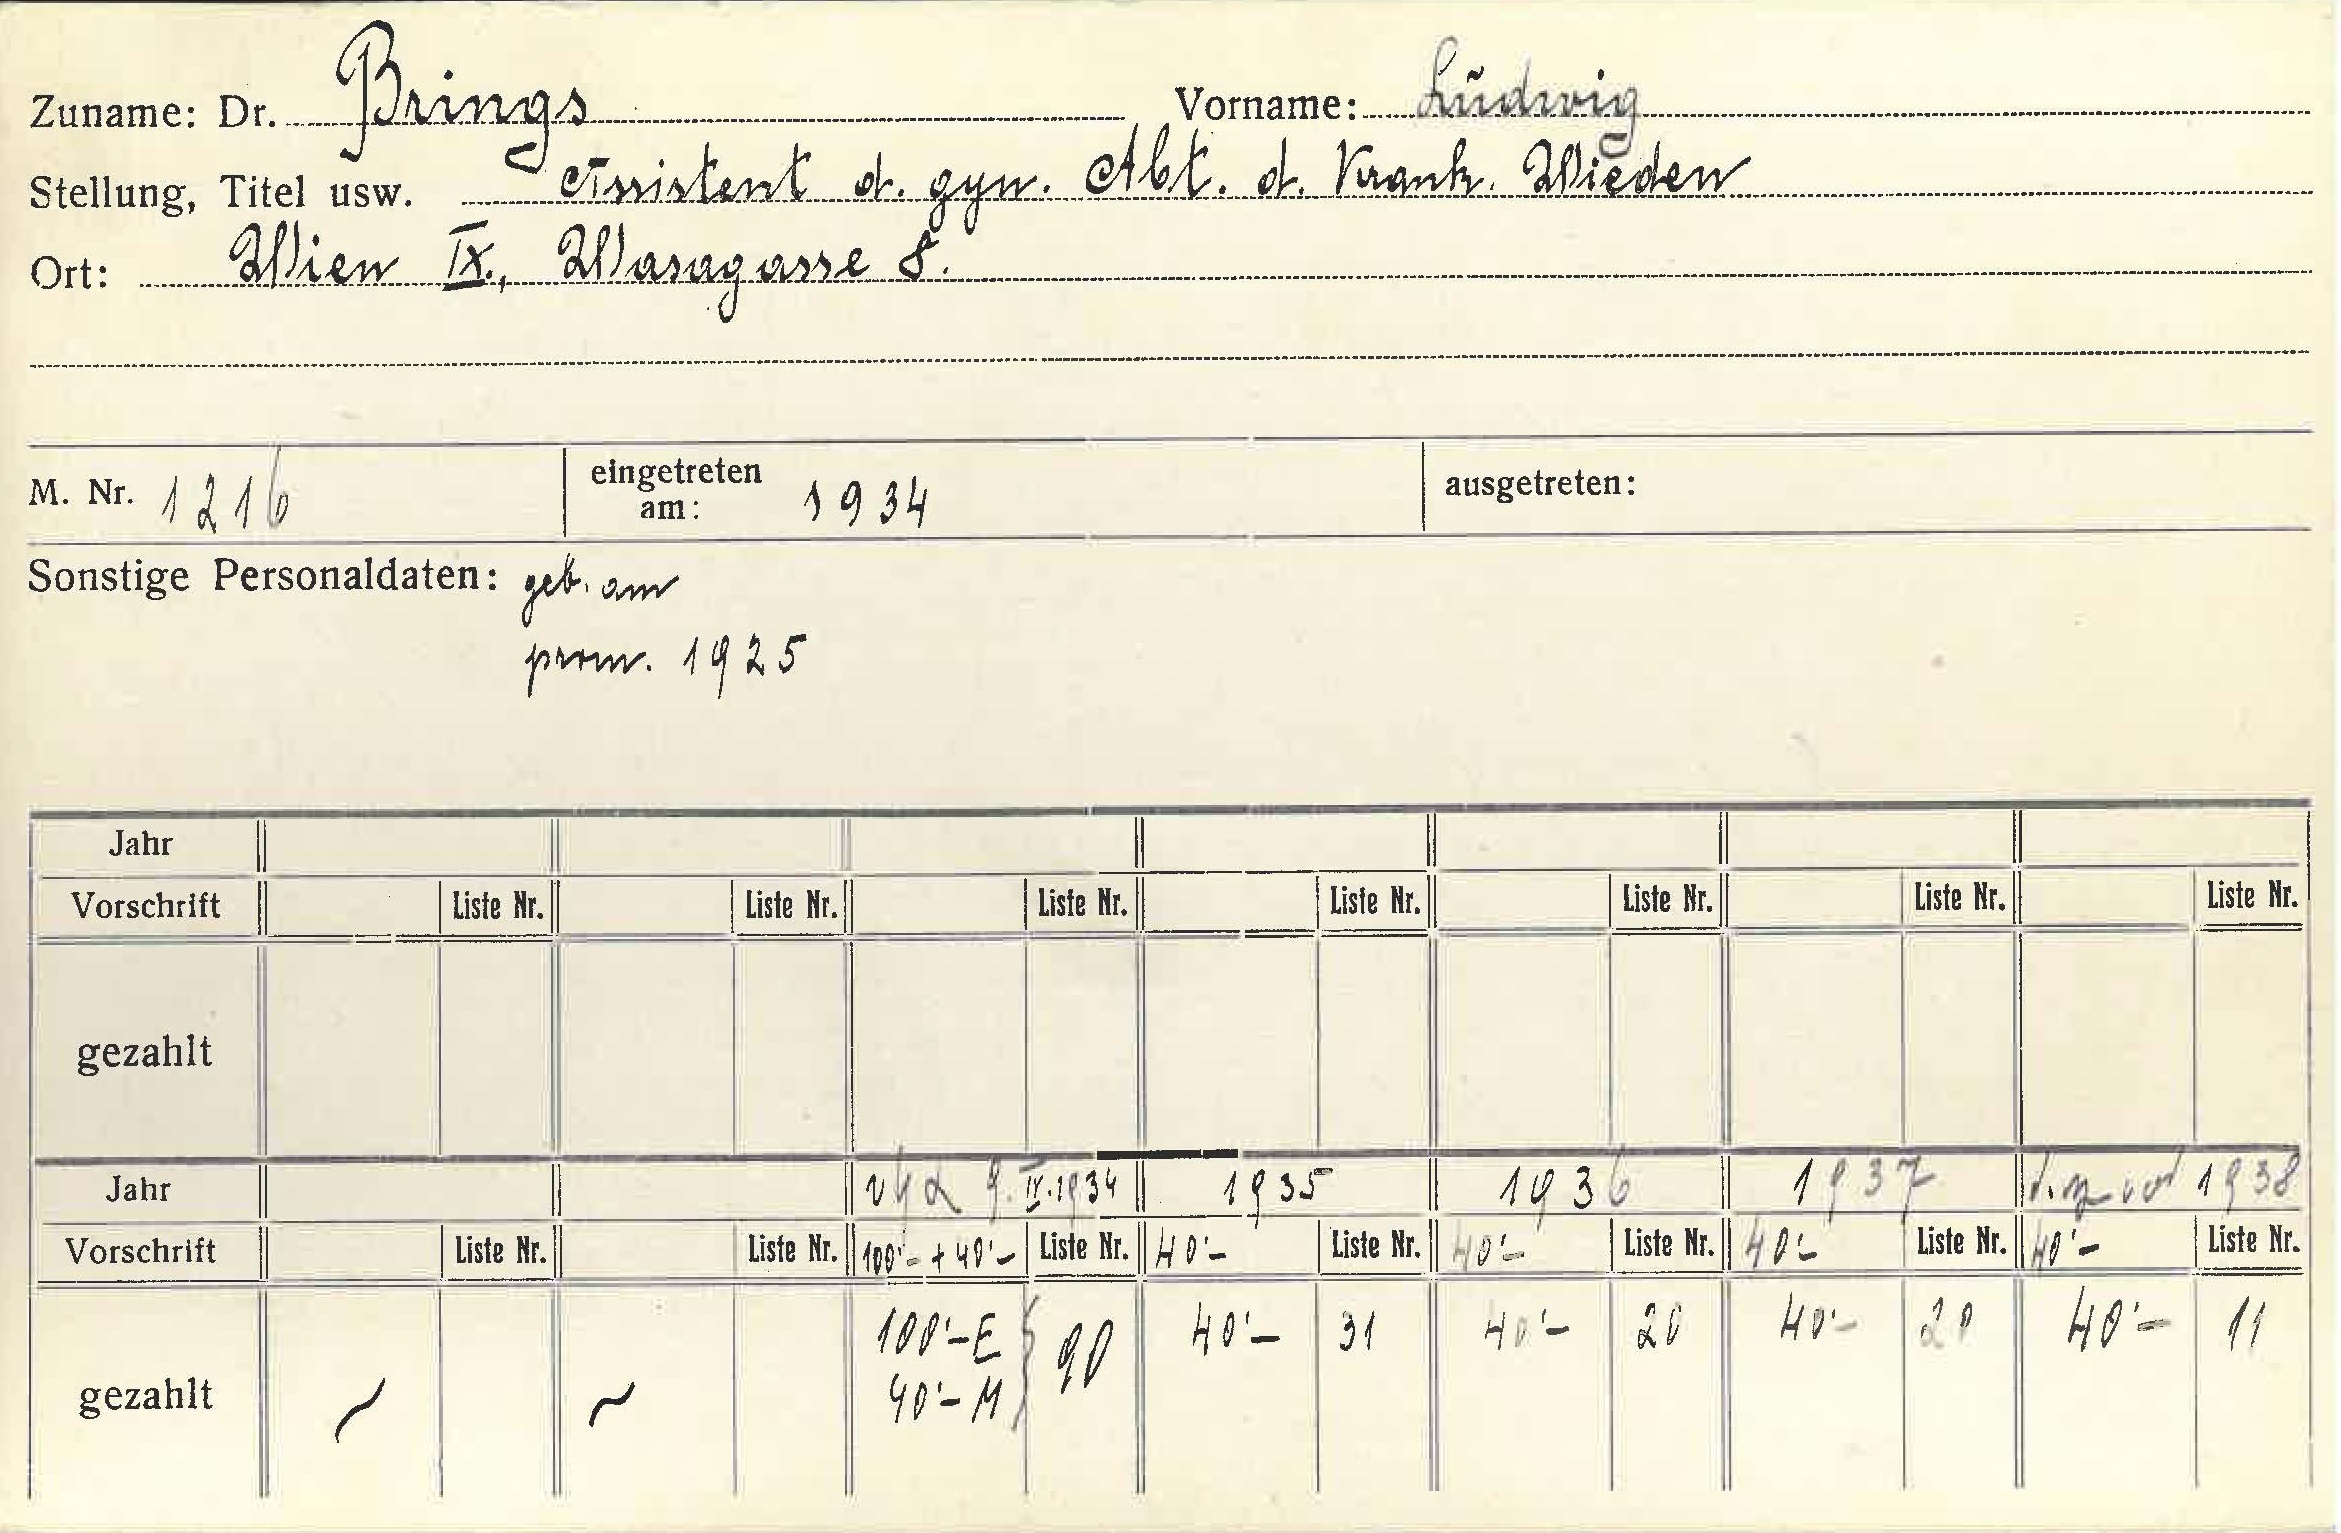 Zuname: Dr. Brings Vorname: Ludwig
Stellung, Titel usw. Assistent d. gyn. Abt. d. Krank. Wieden
Ort: Wien IX., Wasagasse 8.
M. Nr. 1216 eingetreten am: 1934 ausgetreten:
Sonstige Personaldaten: geb. am
prom. 1925
Jahr
Vorschrift Liste Nr. Liste Nr. Liste Nr. Liste Nr. Liste Nr. Liste Nr. Liste Nr.
gezahlt
Jahr 9. IV. 1934 1935 1936 1937 1938
Vorschrift Liste Nr. Liste Nr. 100'- + 40'- Liste Nr. 40'- Liste Nr. 40'- Liste Nr. 40'- Liste Nr. 40'- Liste Nr.
100'- E 90 40'- 31 40'- 20 40'- 20 40'- 11
gezahlt ~ ~ 40'- M